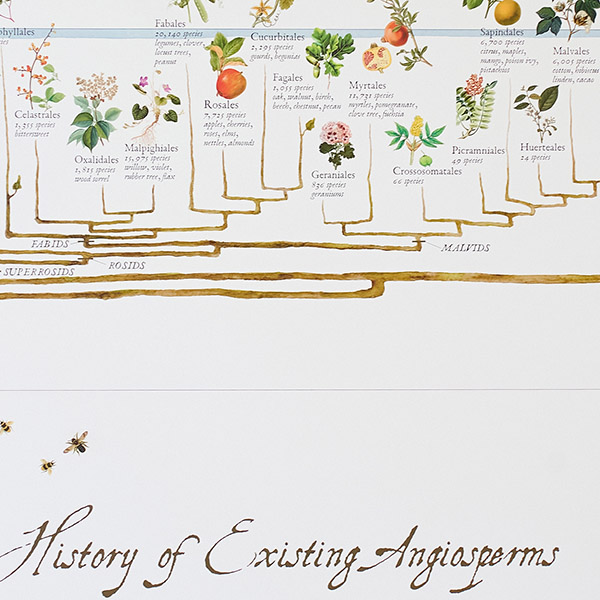 phyllales
Celastrales
1,355 species
bittersweet
Oxalidales
1,815 species
wood sorrel
Fabales
20,140 species
legumes, clover,
locust trees,
peanut
Malpighiales
15,975 species
willow, violet,
rubber tree, flax
Rosales
7,725 species
apples, cherries,
roses, elms,
nettles, almonds
Cucurbitales
2,295 species
gourds, begonias
Fagales
1,055 species
oak, walnut, birch,
beech, chestnut, pecan
Geraniales
836 species
geraniums
Myrtales
11,731 species
myrtles, pomegranate,
clove tree, fuchsia
Crossosomatales
66 species
Picramniales
49 species
Sapindales
6,700 species
citrus, maples,
mango, poison ivy,
pistachios
Huerteales
24 species
Malvales
6,005 species
cotton, hibiscus
linden, cacao
FABIDS
MALVIDS
ROSIDS
SUPERROSIDS
History of Existing Angiosperms